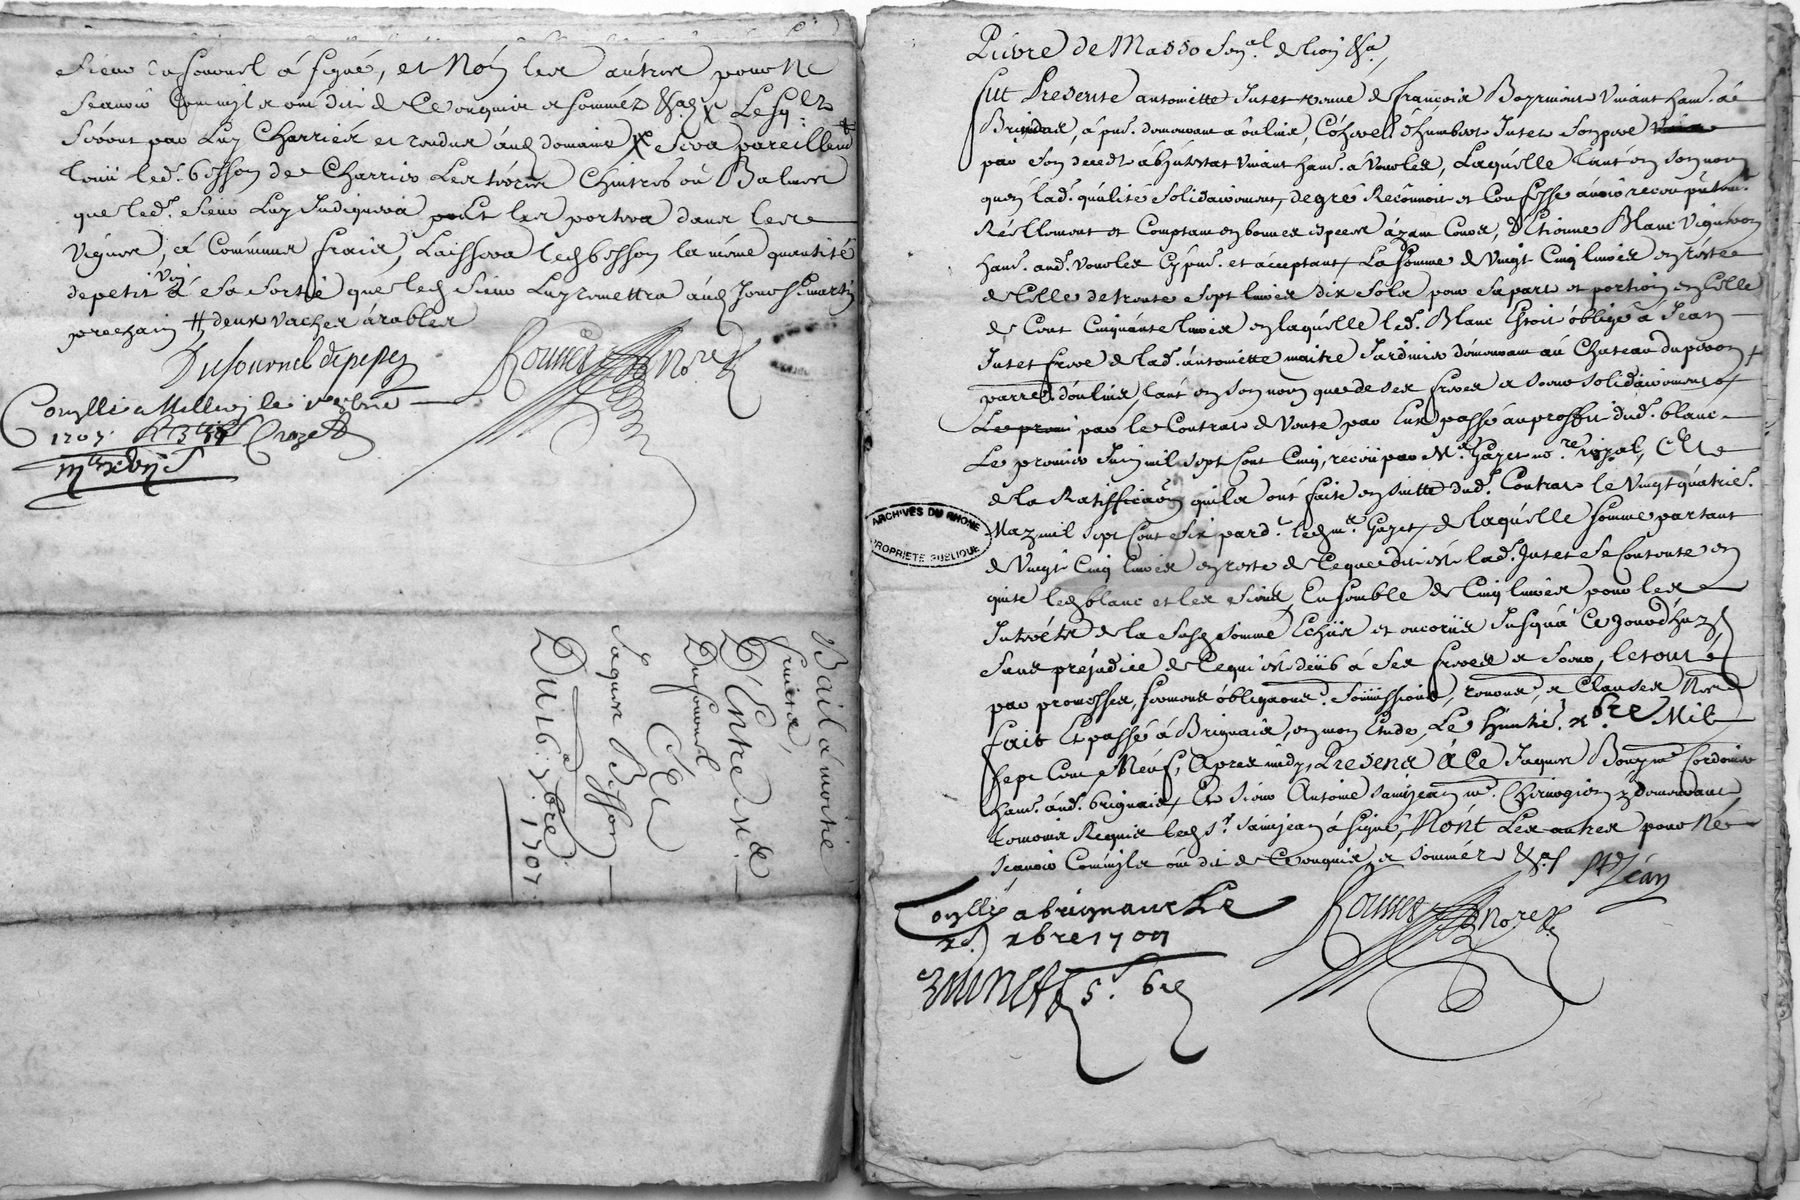 Sieur Dufournel a signé, et Non les autres pour ne
scavoir Comm'ils ont dit de Ce enquis et sommez
seront par Luy Charriés et rendus aud. domaine sera pareillem.t
tenu led. besson de Charrier Les terres Chintres ou Balmes
que led. Sieur Luy Indiquera et les portera dans les
vignes, a Communs frais, Laissera led. besson la meme quantité
de petit vin a sa sortie que led. Sieur Luy remettra aud. Jour st martin
prochain # deux vaches arables
Dufournel depepez
Rouviere No.re
Conyllé a Millery le
1707
Crozet
Bail a moitié
fruits,
D'Entre S.r
Dufournel
Et
Jaques Besson
Du 16.e 7bre
1707.
Pierre de Masso Sen.al de lion &a
fut Presente antoinette Jutet vefve de françois Boyrmont vivant hant. de
Brindas, a pnt. demeurant a oulins, Coheir. d'humbert Jutet son pere
par son decedz abzintestat vivant hant. a vourles, Laquelle tant en son nom
qu'en lad. qualité solidairement, de gré Reconnoit et Confesse avoir receu pntem.t
Réellement et Comptant en bonnes especes ayant Cours, d'Etienne Blanc Vigneron
hant. aud. vourles Cy pnt. et acceptant, La somme de vingt Cinq livres en reste
de Celle de trente sept livres dix sols pour sa part et portion en Celle
de Cent Cinquante livres en laquelle led. Blanc Estoit obligé a Jean
Jutet frere de lad. antoinette maitre Jardinier demeurant au Chateau du perron
parre. d'oulins, tant en son nom que de ses freres et soeur solidairement
par le Contrat de Vente par Eux passé au proffit dud. blanc
Le premier Juin mil sept Cent Cinq, receu par M.e Gayet no.re royal, Et
de la Ratiffica.on qu'ils ont faite en suitte dud. Contrat le vingt quatrie.
May mil sept Cent Six pard. led. m.e Gayet, de laquelle somme partant
de Vingt Cinq livres en reste de Ce que dit est lad. Jutet se Contente en
quite led. blanc et les siens Ensemble de Cinq livres pour les
Interets de la susd. somme Echus et encorus Jusqu'a Ce Jourd'huy
sans prejudice de Ce qui est deub a ses freres et soeur, le tout
par promesses, sermens obliga.ons soumissions, renons. et Clauses
fait Et passé a Brignais, en mon Etude, Le huitie. xbre Mil
sept Cent Neuf, Apres midy, Presens A Ce Jaques Cordonier
hant. aud. brignais, Et sieur Antoine Sainjean m.e Chirurgien y demeurant
temoins Requis led. S.r Sainjean a signé, Non Les autres pour Ne
scavoir Comm'ils ont dit de Ce enquis et sommez &a
St Jean
Conyllé a brignais Le
xbre 1709
Rouviere no.re
ARCHIVES DU RHONE
PROPRIETE PUBLIQUE